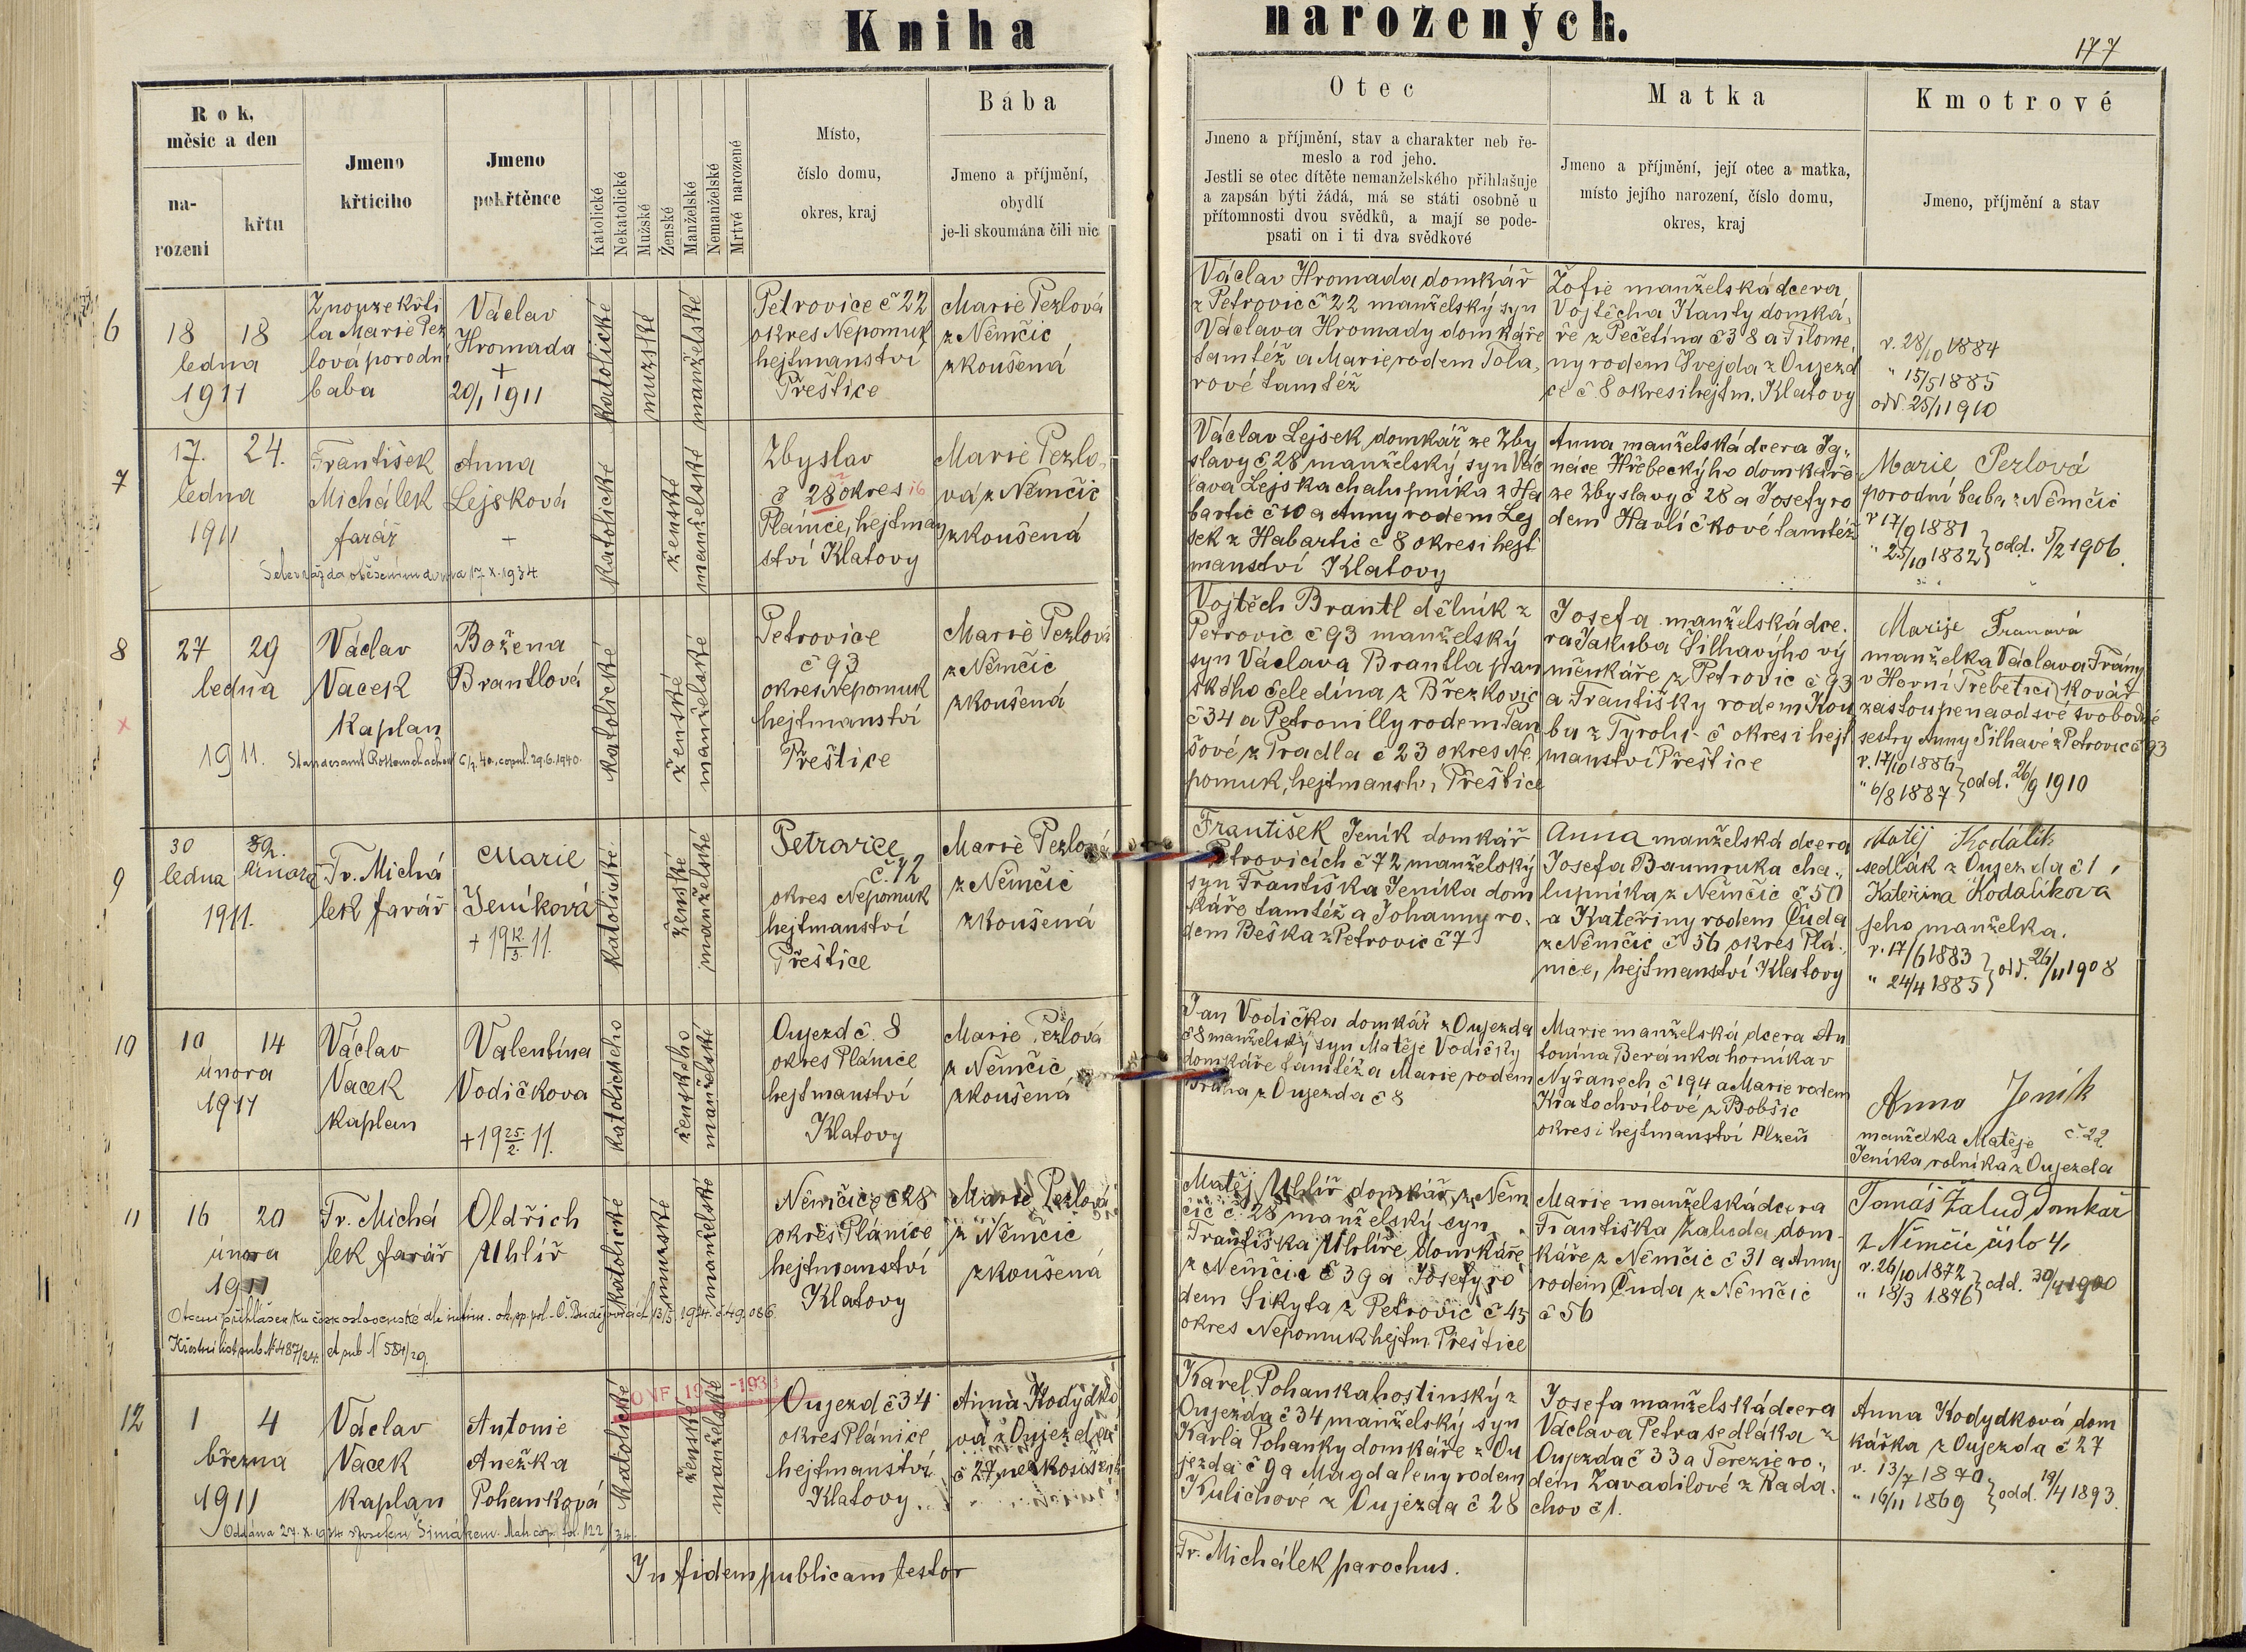 Kniha
narozených.
177
Rok,
měsíc a den
na-
rození
křtu
Jmeno
křticího
Jmeno
pokřtěnce
Katolické
Nekatolické
Mužské
Ženské
Manželské
Nemanželské
Mrtvé narozené
Místo,
číslo domu,
okres, kraj
Bába
Jmeno a příjmění,
obydlí
je-li zkoumána čili nic
Otec
Jmeno a příjmění, stav a charakter neb ře-
meslo a rod jeho.
Jestli se otec dítěte nemanželského přihlašuje
a zapsán býti žádá, má se státi osobně u
přítomnosti dvou svědků, a mají se pode-
psati on i ti dva svědkové
Matka
Jmeno a příjmění, její otec a matka,
místo jejího narození, číslo domu,
okres, kraj
Kmotrové
Jmeno, příjmění a stav
6
18 18
ledna
1911
Z nouze křti
la Marie Pez
lová porodní
baba
Václav
Hromada
+
20/1 1911
katolické
mužské
manželské
Petrovice č 22
okres Nepomuk
hejtmanství
Přeštice
Marie Pezlová
z Němčic
zkoušená
Václav Hromada domkář
z Petrovic č 22 manželský syn
Václava Hromady domkáře
tamtéž a Marie rodem Tola,
rové tamtéž
Žofie manželská dcera
Vojtěcha Kanty domká,
ře z Pečetína č 38 a Filome,
ny rodem Švejda z Oujezd
ce č 8 okres i hejtm. Klatovy
n. 28/10 1884
" 15/5 1885
odd. 25/1 1910
7
17. 24.
ledna
1911
František
Michálek
farář
Anna
Lejsková
+
katolické
ženské
manželské
Zbyslav
č 28 okres 16
Plánice, hejtman
ství Klatovy
Marie Pezlo,
vá z Němčic
zkoušená
Václav Lejsek domkář ze Zby
slavy č 28 manželský syn Vác
lava Lejska chalupníka z Ha
bartic č 10 a Anny rodem Lej
sek z Habartic č 8 okres i hejt
manství Klatovy
Anna manželská dcera Ig„
náce Hřebeckýho domkáře
ze Zbyslavy č 28 a Josefy ro
dem Havlíčkové tamtéž
Marie Pezlová
porodní baba z Němčic
n 17/9 1881
" 25/10 1882 } odd. 5/2 1906.
17. X. 1934
8
27 29
ledna
1911.
Václav
Vacek
Kaplan
Božena
Brantlová
katolické
ženské
manželské
Petrovice
č 93
okres Nepomuk
hejtmanství
Přeštice
Marie Pezlová
z Němčic
zkoušená
Vojtěch Brantl dělník z
Petrovic č 93 manželský
syn Václava Brantla pan
ského čeledína z Březkovic
č 34 a Petronilly rodem Pan
šové z Pradla č 23 okres Ne
pomuk, hejtmanstv, Přeštice
Josefa manželská dce.
ra Jakuba Šilhavýho vý
měnkáře z Petrovic č 93
a Františky rodem Kou
ba z Tyrolu č okres i hejt
manství Přeštice
Marije Franová
manželka Václava Frány
v Horní Třebetici kovář
zastoupena od své svobodné
sestry Anny Šilhavé z Petrovic č 93
n. 17/10 1886
" 6/8 1887 } odd. 26/9 1910
copul. 29.6.1940.
9
30
ledna
2.
února
1911.
Fr. Michá
lek farář
Marie
Jeníková
+ 19 12/5. 11.
katolické
ženské
manželské
Petrovice
č. 72
okres Nepomuk
hejtmanství
Přeštice
Marie Pezlová
z Němčic
zkoušená
František Jeník domkář
Petrovicích č 72 manželský
syn Františka Jeníka dom
káře tamtéž a Johanny ro.
dem Beška z Petrovic č 7
Anna manželská dcera
Josefa Baumruka cha„
lupníka z Němčic č 50
a Kateřiny rodem Čuda
z Němčic č 56 okres Plá.
nice, hejtmanství Klatovy
Matěj Kodálík
sedlák z Oujezda č 1,
Kateřina Kodalíková
jeho manželka.
n. 17/6 1883
" 24/4 1885 } odd. 26/11 1908
10
10 14
února
1911
Václav
Vacek
Kaplan
Valentina
Vodičkova
+ 19 25/2. 11.
katolického
ženského
manželské
Oujezd č. 8
okres Plánice
hejtmanství
Klatovy
Marie Pezlová
z Němčic
zkoušená
Jan Vodička domkář z Oujezda
č 8 manželský syn Matěje Vodičky
domkáře tamtéž a Marie rodem
z Oujezda č 8
Marie manželská dcera An
tonína Beranka horníka v
Nýřanech č 194 a Marie rodem
Kratochvílové z Bobšic
okres i hejtmanství Plzeň
Anna Jeník
manželka Matěje č. 22
Jeníka rolníka z Oujezda
11
16 20
února
1911
Fr. Michá
lek farář
Oldřich
Uhlíř
katolické
mužské
manželské
Němčice č 28
okres Plánice
hejtmanství
Klatovy
Marie Pezlová
z Němčic
zkoušená
Matěj Uhlíř domkář z Něm
čic č. 28 manželský syn
Františka Uhlíře domkáře
z Němčic č 39 a Josefy ro
dem Sikyta z Petrovic č 45
okres Nepomuk hejtm. Přeštice
Marie manželská dcera
Františka Žaluda dom
káře z Němčic č 31 a Anny
rodem Čuda z Němčic
č 56
Tomáš Žalud domkař
z Němčic číslo 4,
n. 26/10 1872
" 18/3 1876 } odd. 30/4 1900
Křestní list sub N 487/24. A sub N 584/29.
12
1 4
března
1911
Václav
Vacek
Kaplan
Antonie
Anežka
Pohanková
katolické
ženské
manželské
Oujezd č 34
okres Plánice
hejtmanství
Klatovy
Anna Kodýdko
vá z Oujezda
č 27
Karel Pohanka hostinský z
Oujezda č 34 manželský syn
Karla Pohanky domkáře z Ou
jezda č 9 a Magdaleny rodem
Kulichové z Oujezda č 28
Josefa manželská dcera
Václava Petra sedláka z
Oujezda č 33 a Terezie ro„
dem Zavadilové z Rada.
chov č 1.
Anna Kodydková dom
kářka z Oujezda č 27
n. 13/7 1870
" 16/11 1869 } odd. 19/4 1893.
Oddána 27. X. 1934 s Josefem Šimákem. Mat. cop. fol. 122/34.
In fidem publicam testor
Fr. Michálek parochus.